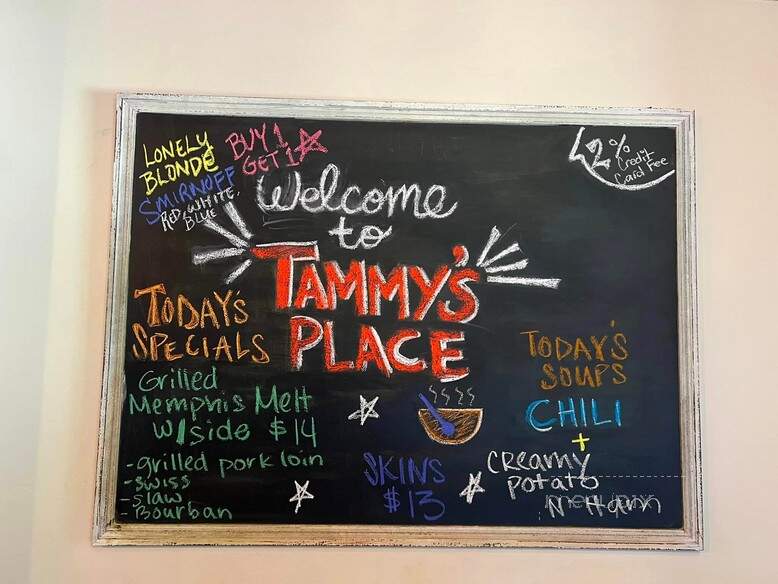 LONELY
BLONDE
BUY 1
GET 1
SMIRNOFF
RED, WHITE,
BLUE
2%
Credit
Card Fee
Welcome
to
TAMMY'S
PLACE
TODAY'S
SPECIALS
Grilled
Memphis Melt
w/side $14
-grilled pork loin
-swiss
-slaw
-Bourban
SKINS
$13
TODAY'S
SOUPS
CHILI
+
CREAMY
POTATO
N Ham